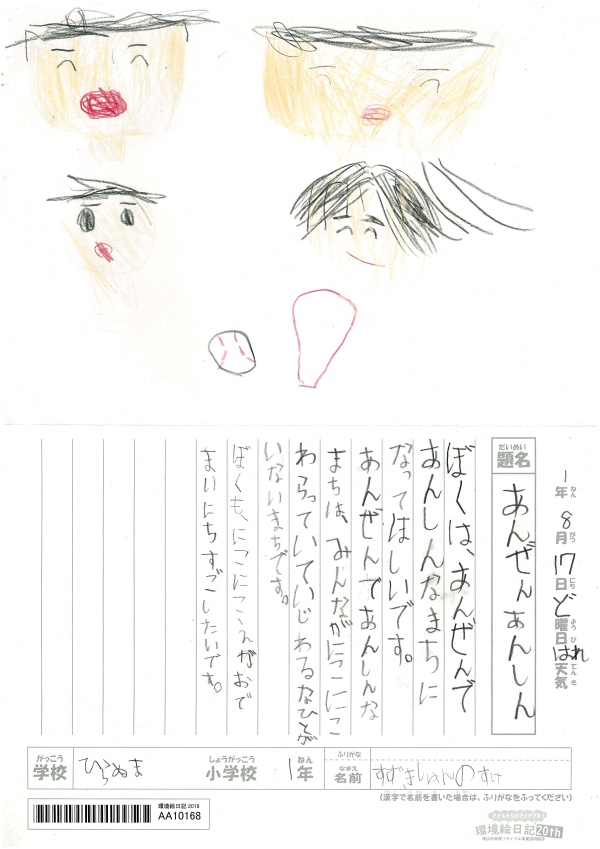 1年 8月 17日 ど曜日 はれ天気
ねん がつ にち ようび てんき
だいめい
題名
あんぜんあんしん
ぼくは、あんぜんで
あんしんなまちに
なってほしいです。
あんぜんであんしんな
まちは、みんながにこにこ
わらっていていじわるなひとが
いないまちです。
ぼくも、にこにこえがおで
まいにちすごしたいです。
がっこう
学校
ひらぬま
しょうがっこう
小学校
1年
ねん
ふりがな
なまえ
名前
すずきしゅんのすけ
(漢字で名前を書いた場合は、ふりがなをふってください)
環境絵日記 2019
AA10168
環境絵日記20th